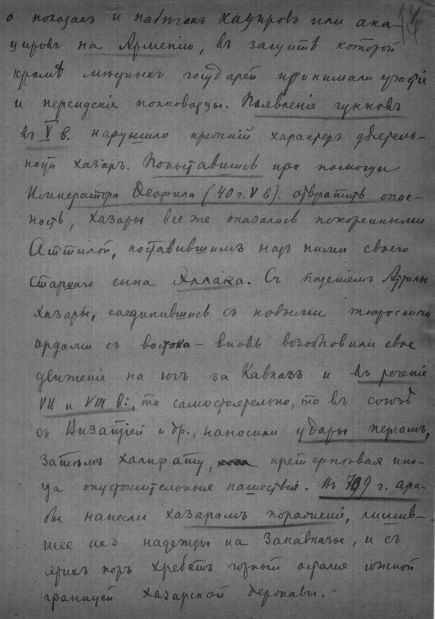 о походах и набегах хазиров или ака-
циров на Армению, в защите которой
кроме местных государей принимали участие
и персидские полководцы. Появление гуннов
в V в. нарушило прежний характер деятель-
ности хазар. Попытавшись при помощи
Императора Феофила (40 г. V в). отвратить опас-
ность, хазары все же оказались покоренными
Аттилой, поставившим над ними своего
старшаго сына Эллака. С падением Аттилы
хазары, соединившись с новыми тюрскими
ордами с востока – вновь возобновили свое
движение на юг за Кавказ и в течение
VII и VIII в., то самостоятельно, то в союзе
с Византией и др., наносили удары персам,
затем Халифату, претерпевая ино-
гда опустошительные нашествия. В 799 г. ара-
бы нанесли хазарам поражение, лишив-
шее их надежды на Закавказье, и с
этих пор хребет горный остался южной
границей хазарской державы.